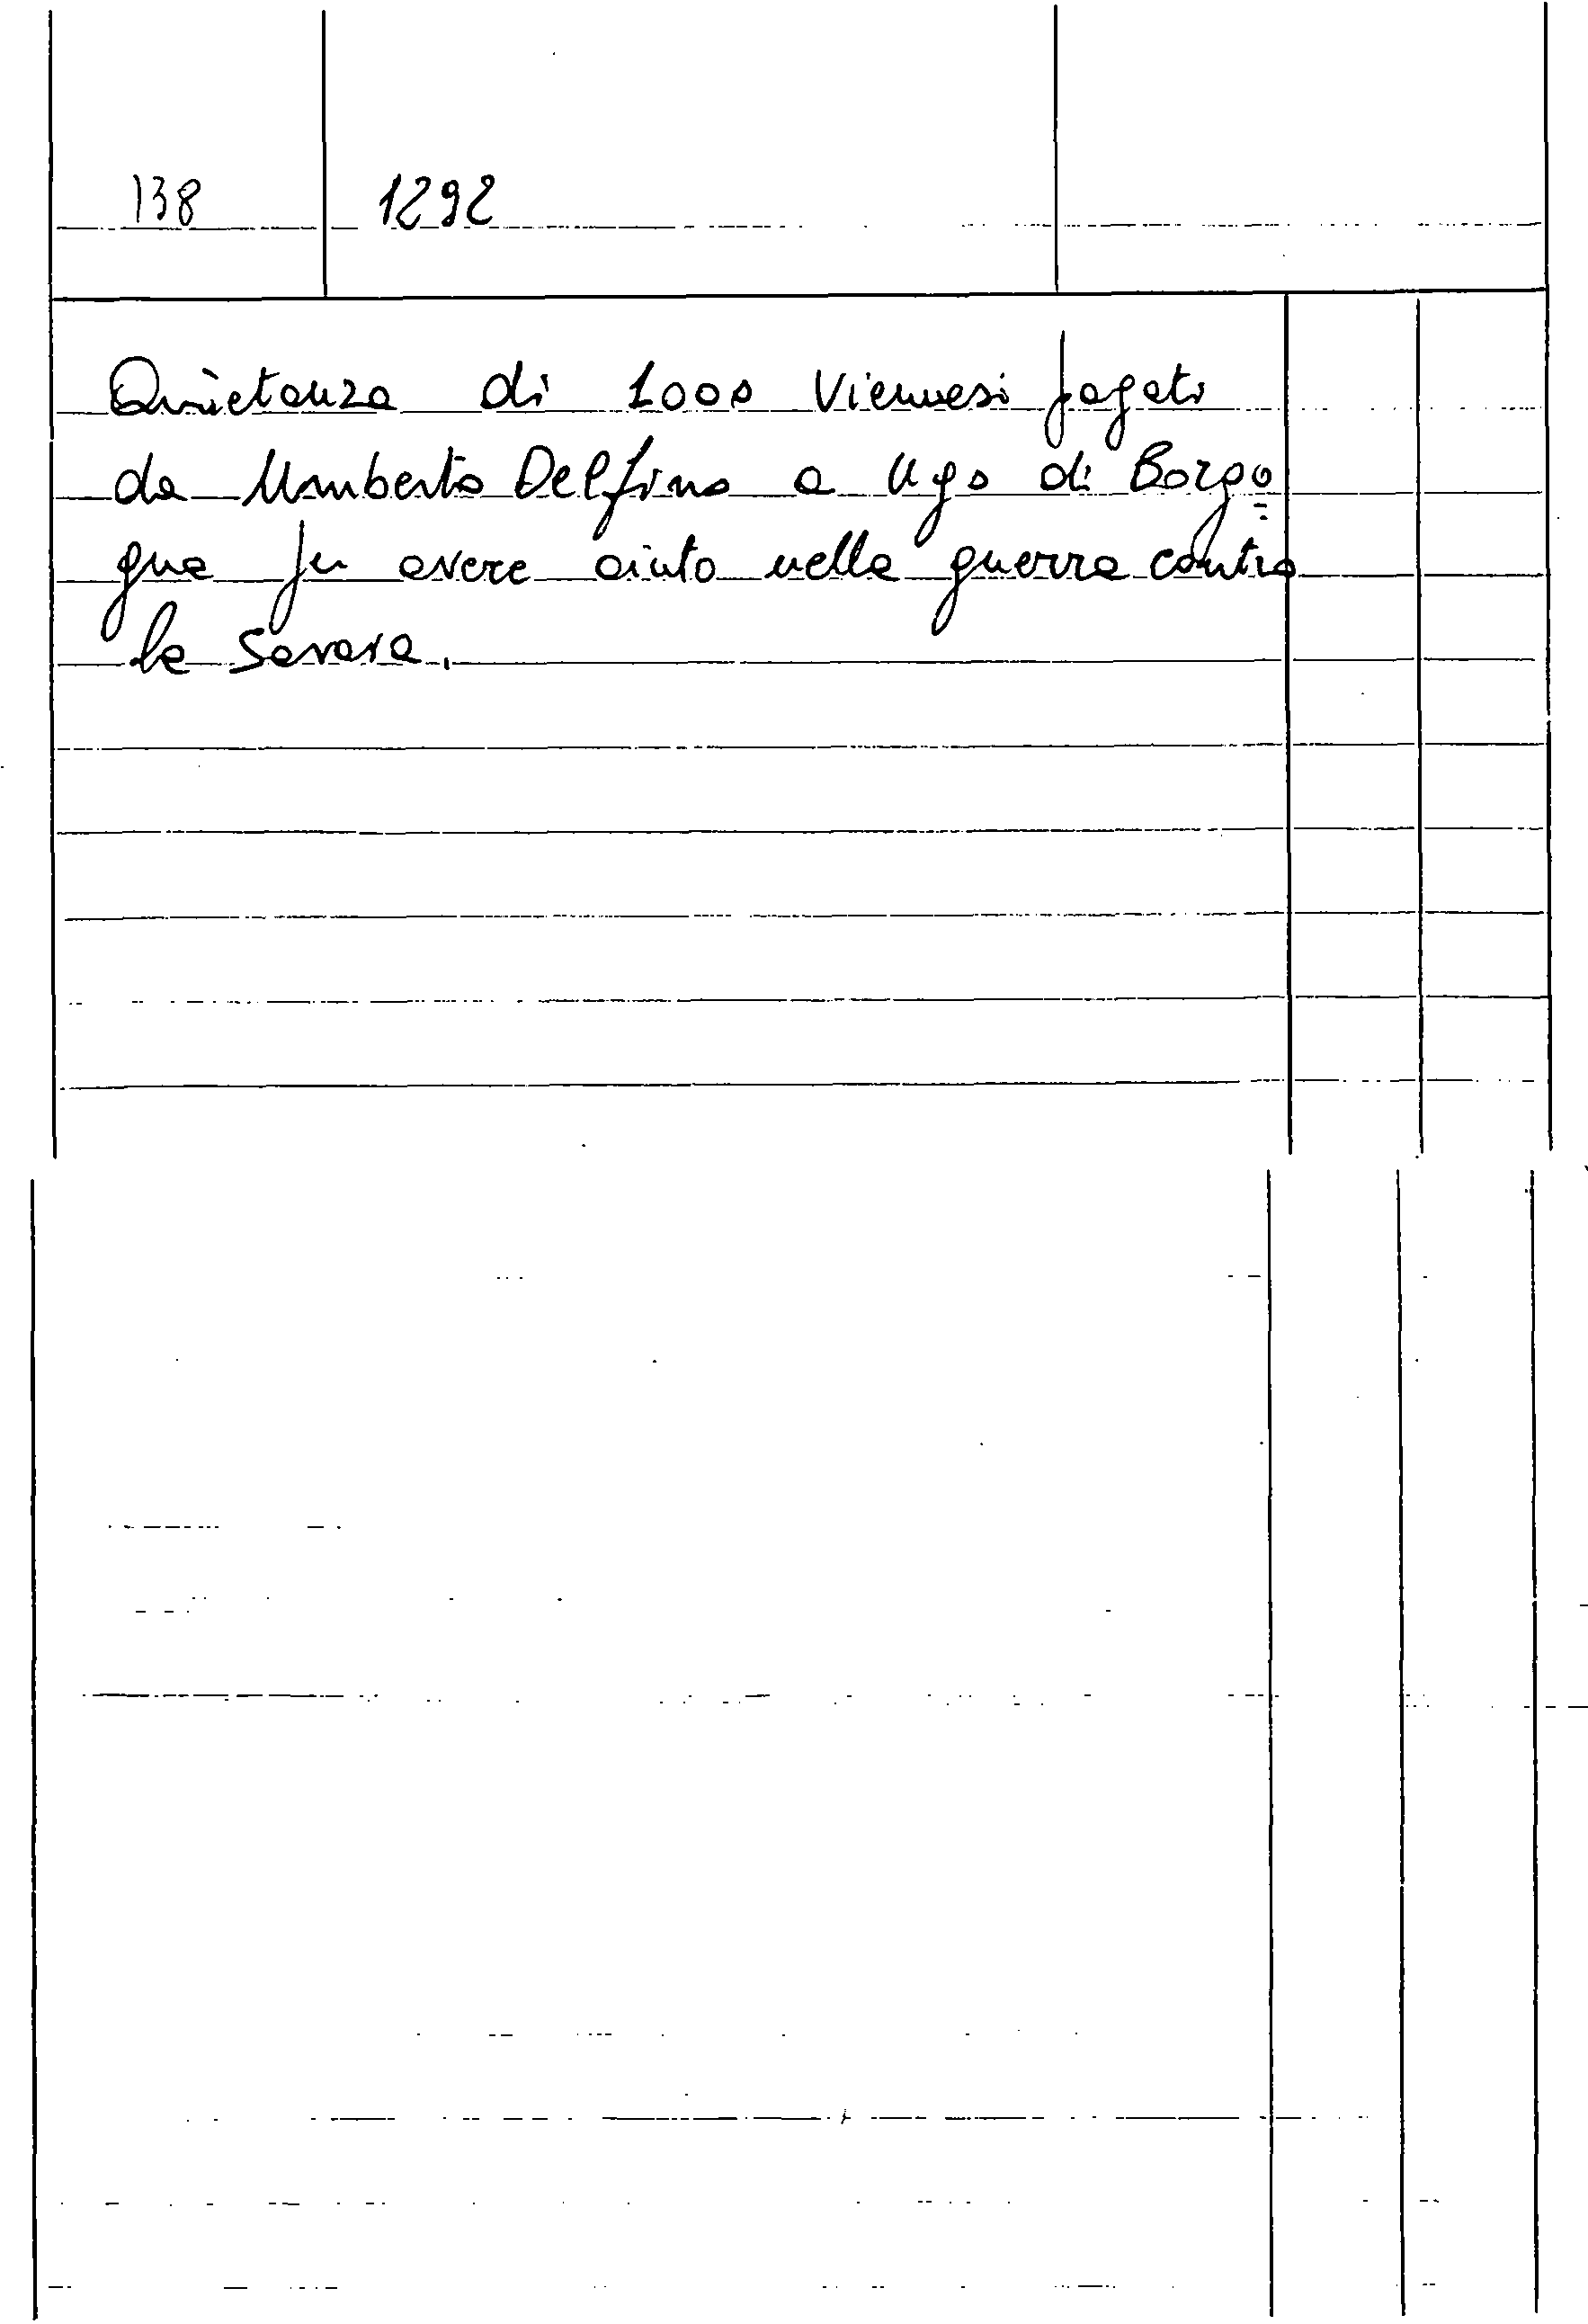 138 1292
Quietanza di 1000 Viennesi pagati
da Umberto Delfino a Ugo di Borgo
gna per avere aiuto nella guerra contro
la Savoia.